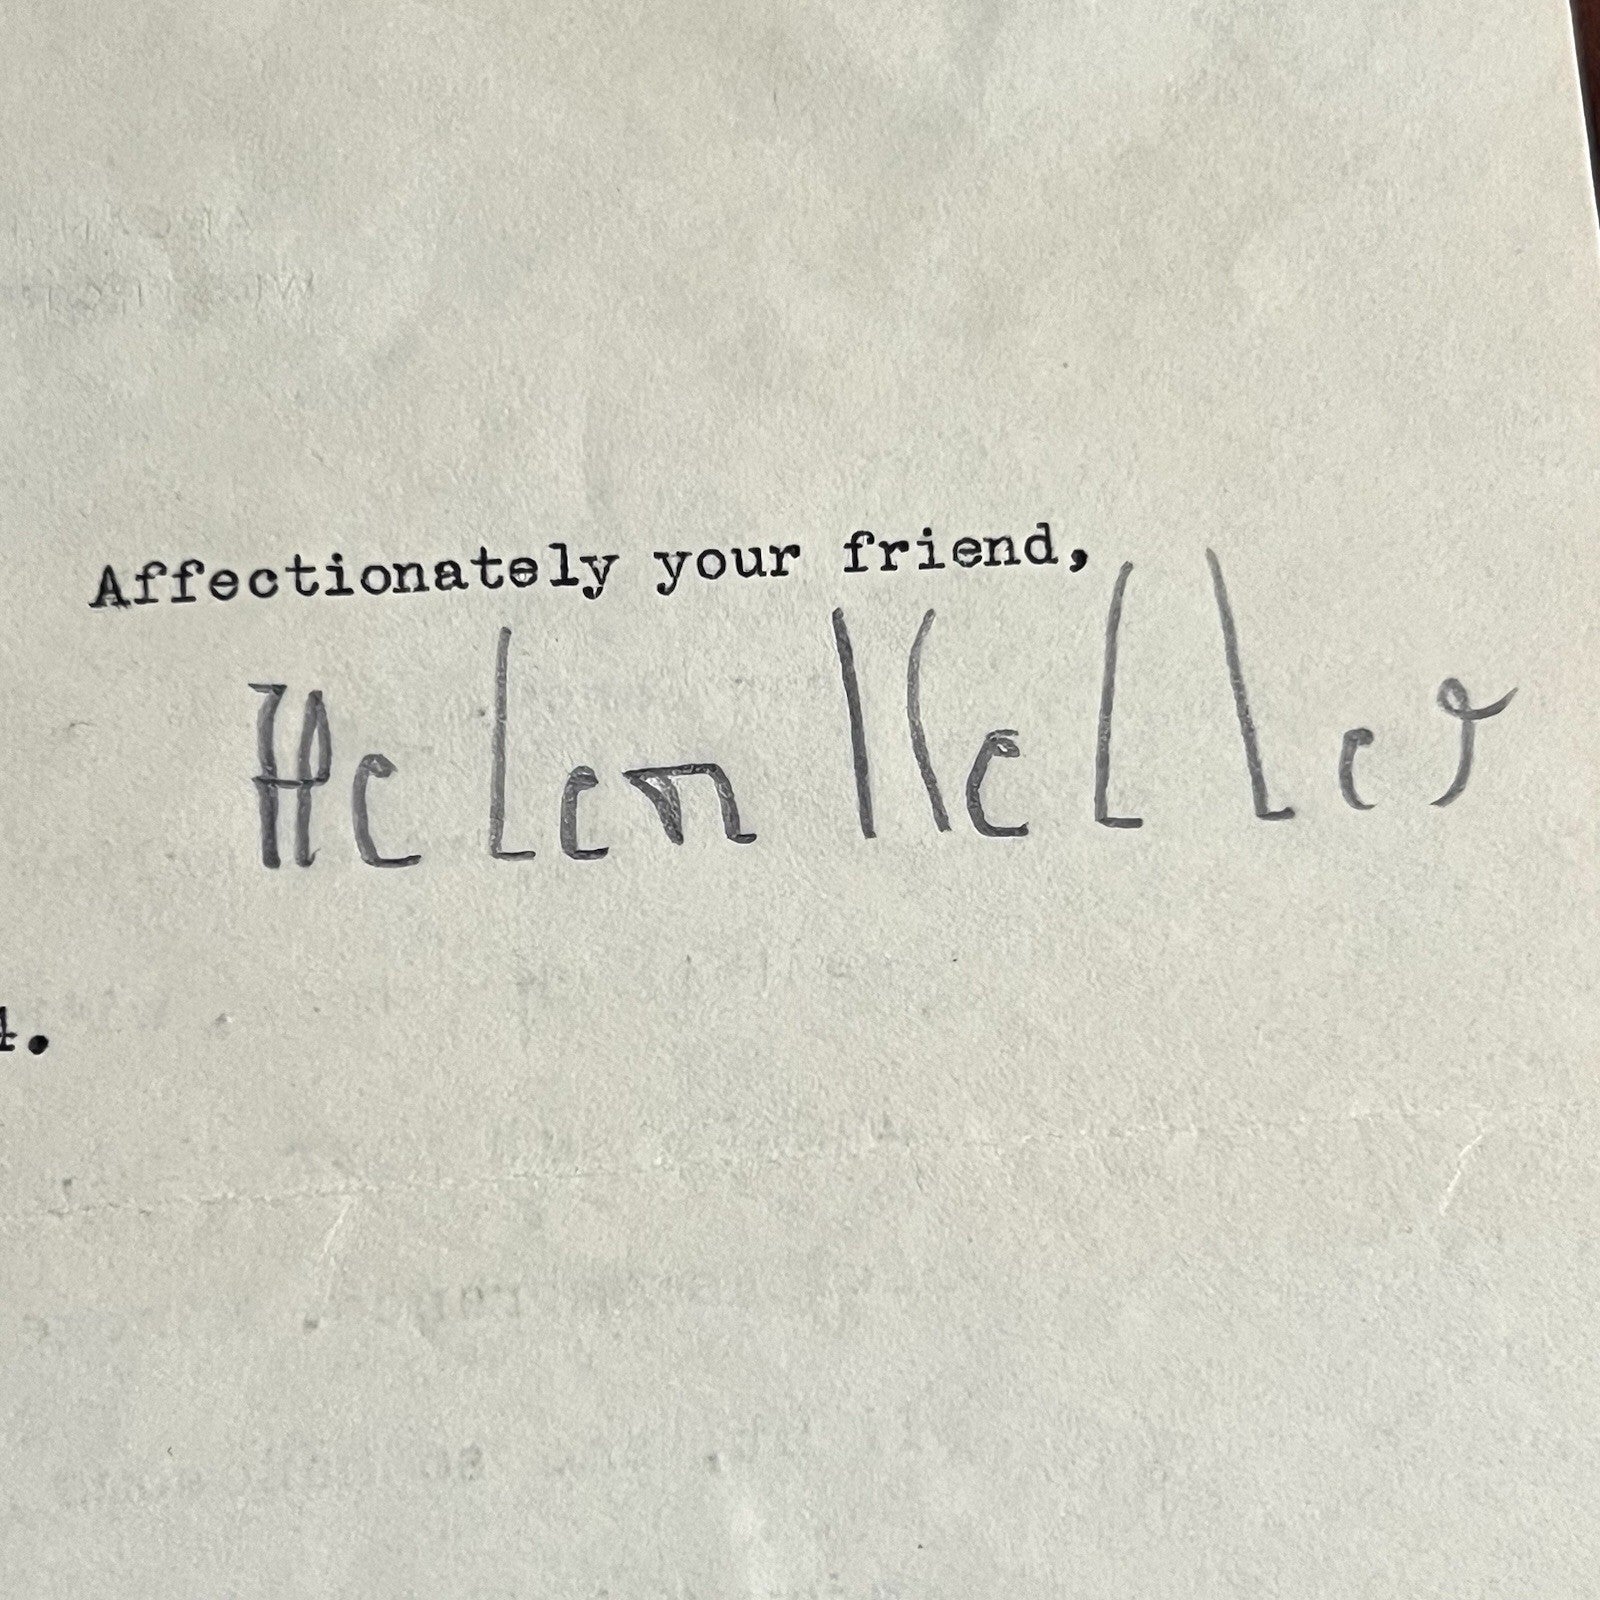 Affectionately your friend,
Helen Keller
4.